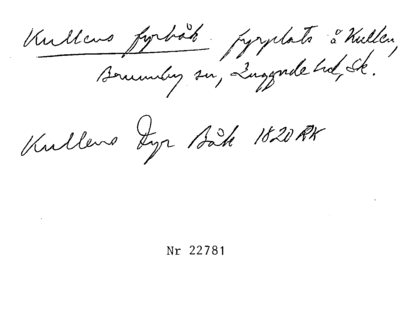 Kullens fyrbåk. fyrplats å Kullen,
Brunnby sn, Luggude hd, Sk.
Kullens Fyr Båk 1820 RK
Nr 22781